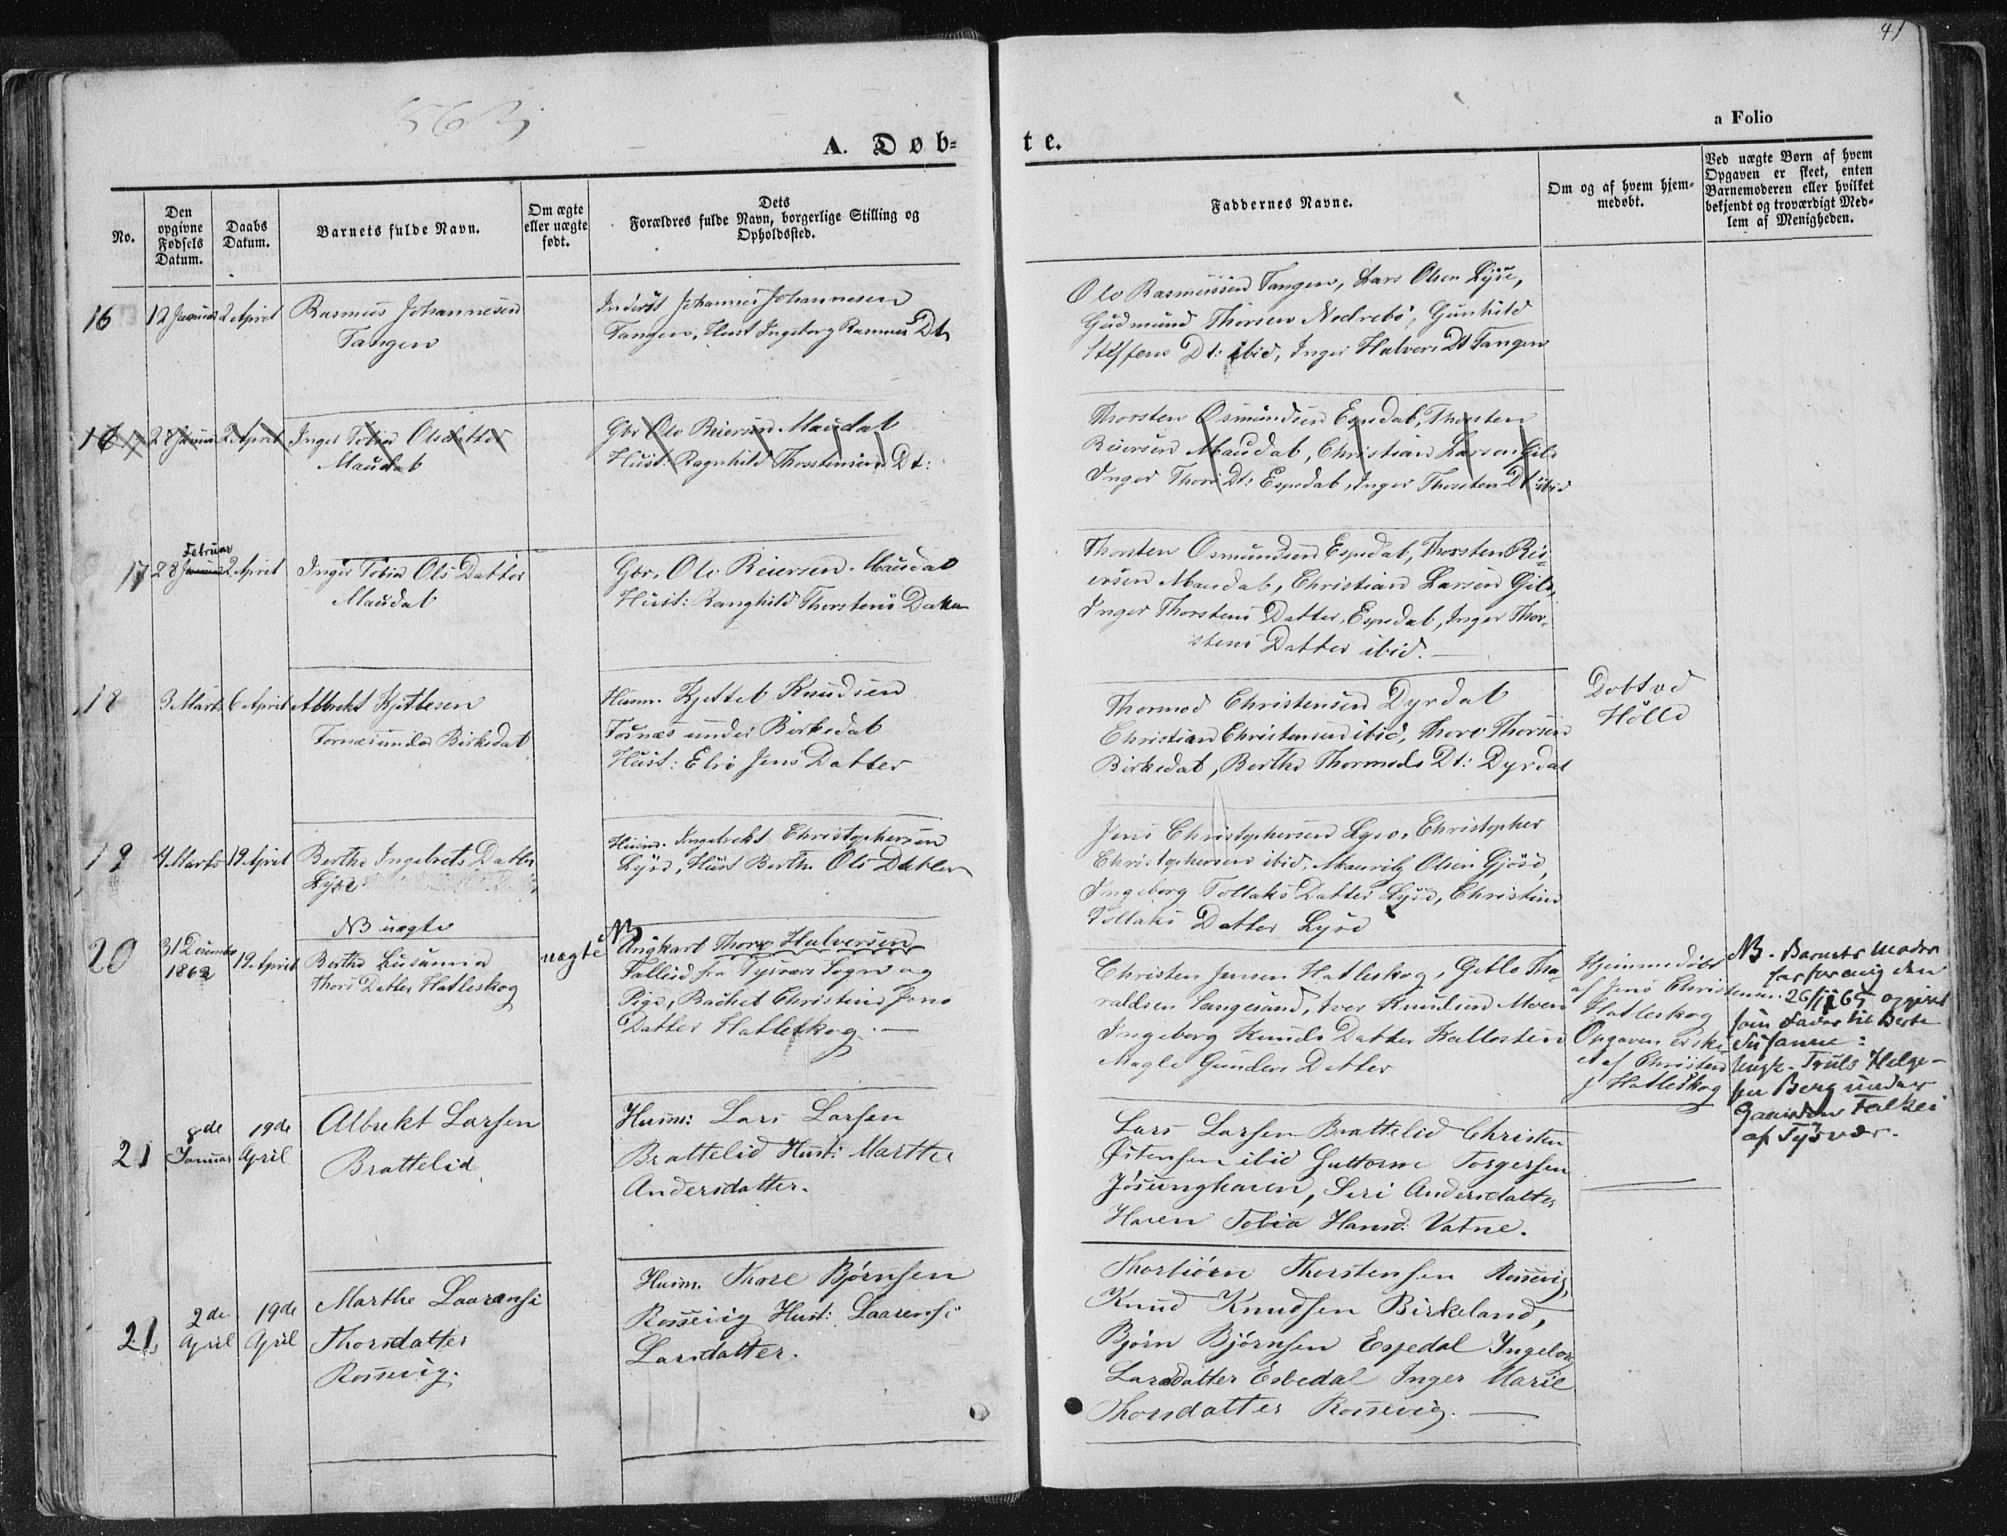 41
a Folio
A. Døb-
te.
No.
Den opgivne Fødsels Datum.
Daabs Datum.
Barnets fulde Navn.
Om ægte eller uægte født.
Dets Forældres fulde Navn, borgerlige Stilling og Opholdssted.
Faddernes Navne.
Om og af hvem hjemmedøbt.
Ved uægte Børn af hvem Opgaven er skeet, enten Barnemoderen eller hvilket bekjendt og troværdigt Medlem af Menigheden.
16
12 Januar
2 April
Rasmus Johannesen
Tangen
Johannes Johannesen
Tangen, Hust Ingeborg Rasmus Dt.
Ole Rasmussen Tangen, Lars Olsen Lyse,
Gudmund Thorsen Nedrebö, Gunhild
Steffens Dt: ibid, Inger Halvors Dt Tangen
16
28 Januar
2 April
Inger Tobia Olsdatter
Maudal
Gbr Ole Reiersen Maudal
Hust: Ragnhild Thorstensen Dt:
Thorsten Osmundsen Espedal, Thorsten
Reiersen Maudal, Christian Larsen Gilje
Inger Thors Dt: Espedal, Inger Thorsten Dt ibid
17
Februar
28 Januar
2 April
Inger Tobia Ols Datter
Maudal
Gbr. Ole Reiersen Maudal
Hust: Ranghild Thorstens Datter
Thorsten Osmundsen Espedal, Thorsten Rei-
ersen Maudal, Christian Larsen Gilje,
Inger Thorstens Datter Espedal, Inger Thor-
stens Datter ibid.
18
3 Marts
6 April
Albrekt Kjetlesen
Fornæs under Birkedal
Husm. Kjettel Knudsen
Fornæs under Birkedal
Hust: Elri Jens Datter
Thormod Christensen Dyrdal
Christian Christensen ibid, Thore Thorsen
Birkedal, Berthe Thormods Dt: Dyrdal
Döbt ved
Hölle
19
4 Marts
19 April
Berthe Ingebrets Datter
Lyse
Husm. Ingebrekt Christophersen
Lyse, Hust Berthe Ols Datter
Jens Christophersen Lyse, Christopher
Christophersen ibid, Mauritz Olsen Gjöse,
Ingeborg Tollaks Datter Lyse, Christine
Tollaks Datter Lyse
NB uægte
20
31 December
1862
19 April
Berthe Susanna
Thors Datter Hatleskog
uægte
NB
Ungkarl Thore Halversen
Fallied fra Tysvær Sogn og
Pige, Rachel Christine Jens
Datter Hatleskog.
Christen Jensen Hatleskog, Gitle Tha-
raldsen Langesand, Iver Knudsen Moen
Ingeborg Knuds Datter Kallesten
Magle Gunders Datter
Hjemmedöbt
af Jens Christensen
Hatleskog
Opgaven er ske-
et af Christen
J Hatleskog
NB. Barnets Moder
har for mig den
26/11 65 opgivet
som Fader til Berte
Susanne:
Ungk. Truls Helge-
sen Berg under
Gaarden Falkei
af Tysvær.
21
8de
Januar
19de
April
Albrekt Larsen
Brattelid
Husm: Lars Larsen
Brattelid Hust: Marthe
Andersdatter.
Lars Larsen Brattelid Christen
Østensen ibid Guttorm Torgersen
Jösunghaven, Siri Andersdatter
Haven Tobia Hansd: Vatne.
21
2de
April
19de
April
Marthe Laarensi
Thorsdatter
Rossevig.
Husm. Thore Bjørnsen
Rossevig Hust: Laarensi
Larsdatter.
Thorbiörn Thorstensen Rossevig,
Knud Knudsen Birkeland,
Bjørn Bjørnsen Espedal Ingeborg
Larsdatter Esbedal Inger Marie
Thorsdatter Rossevig.